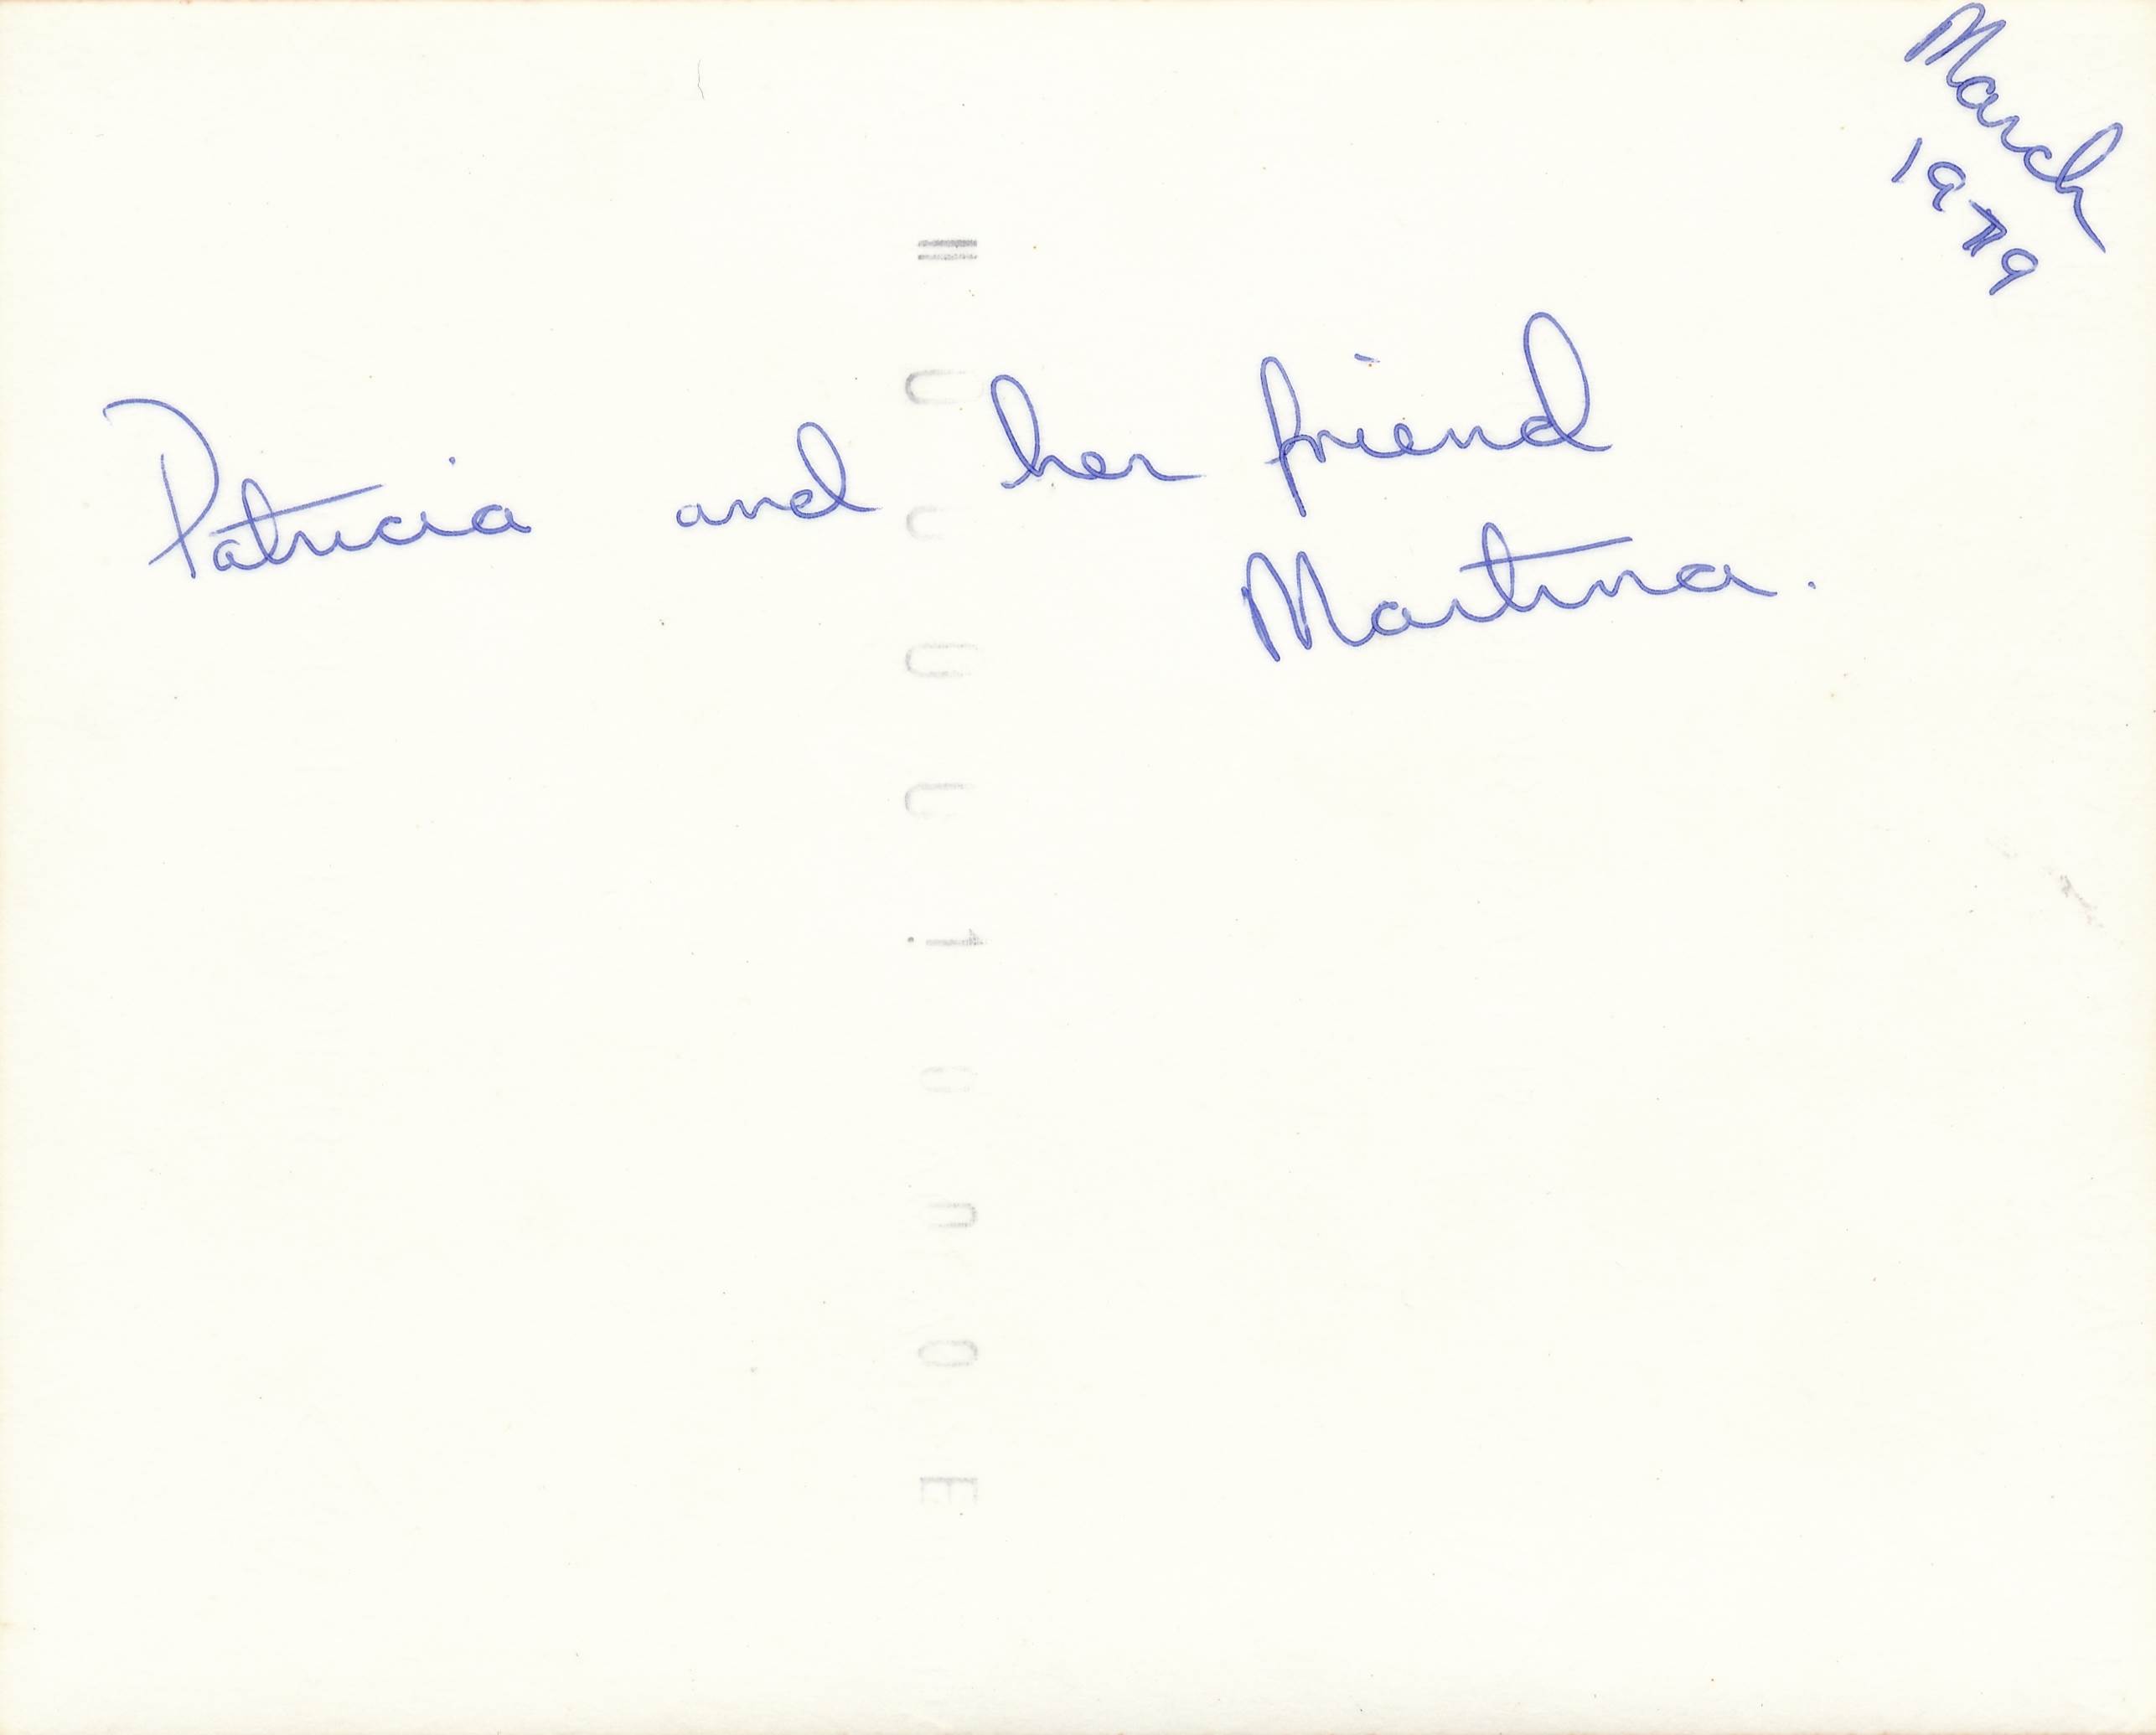 March
1979
Patricia and her friend
Martina.